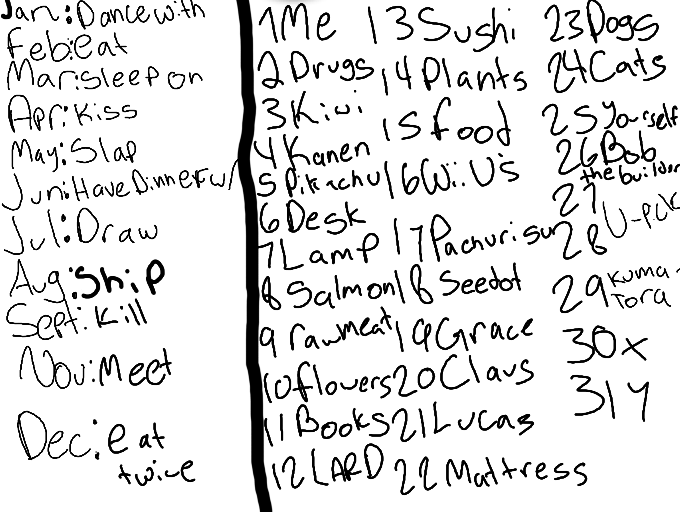 Jan: Dance with
Feb: eat
Mar: sleep on
Apr: Kiss
May: Slap
Jun: Have Dinner w/
Jul: Draw
Aug: Ship
Sept: Kill
Nov: Meet
Dec: eat
twice
1 Me
2 Drugs
3 Kiwi
4 Kanen
5 Pikachu
6 Desk
7 Lamp
8 Salmon
9 raw meat
10 flowers
11 Books
12 LARD
13 Sushi
14 Plants
15 food
16 Wii U's
17 Pachirisu
18 Seedot
19 Grace
20 Claus
21 Lucas
22 Mattress
23 Dogs
24 Cats
25 Yourself
26 Bob
the builder
27
28 U-pick
29 Kuma-
Tora
30 x
31 y